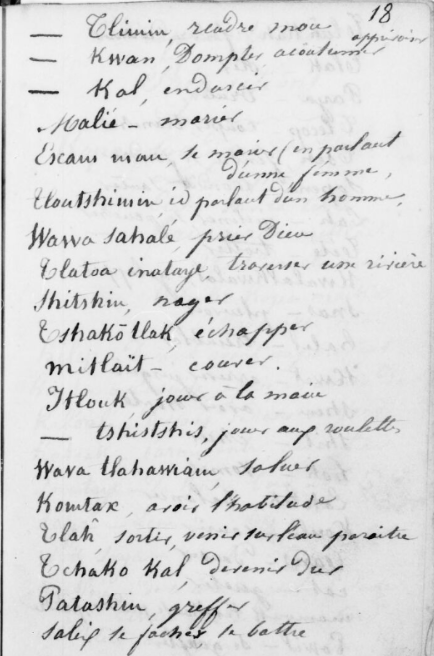 18
— Tlimin, rendre mou
— Kwan, Dompter acoutumer apprivoiser
— Kal, endurcir
Malié - marier
Escam man, se marier (en parlant
d'une femme,
Tloutshmin, id parlant d'un homme,
Wawa sahalé, prier Dieu
Tlatoa inataye, traverser une rivière
Shitshin, nager
Tshakō tlak, échapper
mitlaït - courer.
Itlouk, jouer à la main
— tshistshis, jouer aux roulettes
Wava tlahawiam, saluer
Komtax, avoir l'habitude
Tlah, sortir, venir sur l'eau paraitre
Tchako Kal, devenir dur
Patashin, greffer
saleix se facher se battre